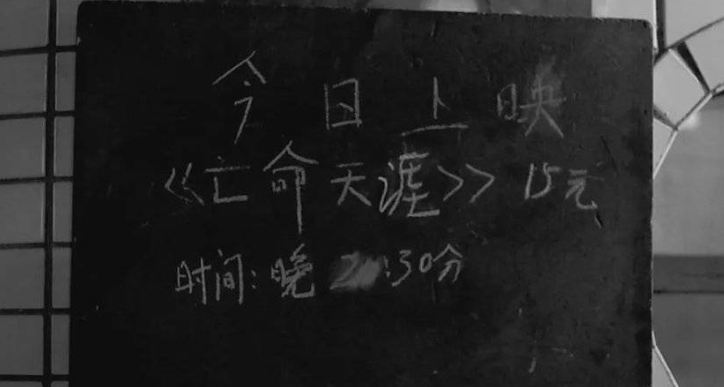 今日上映
《亡命天涯》 15元
时间:晚 :30分